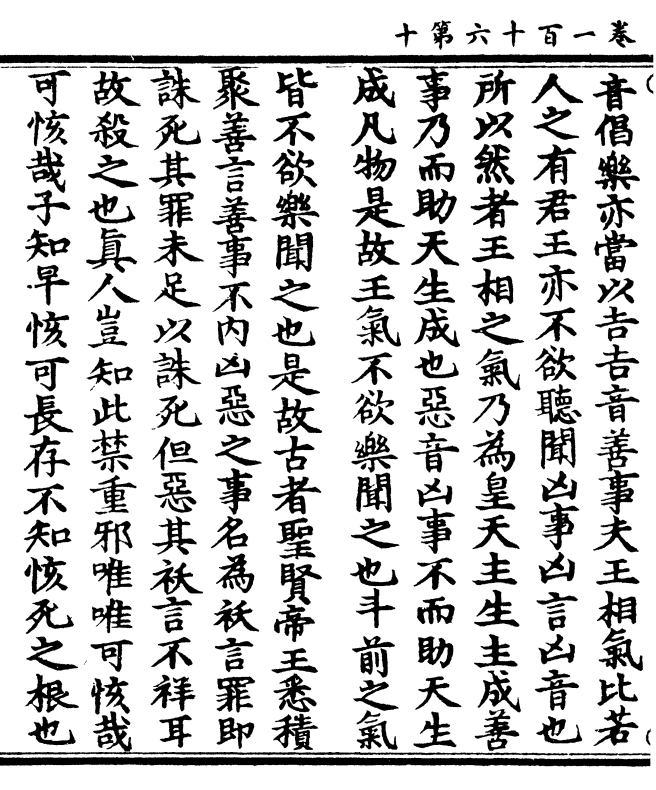 卷一百十六第十
音倡樂亦當以吉吉音善事夫王相氣比若
人之有君王亦不欲聽聞凶事凶言凶音也
所以然者王相之氣乃為皇天主生主成善
事乃而助天生成也惡音凶事不而助天生
成凡物是故王氣不欲樂聞之也斗前之氣
皆不欲樂聞之也是故古者聖賢帝王悉積
聚善言善事不内凶惡之事名為祅言罪即
誅死其罪未足以誅死但惡其祅言不祥耳
故殺之也眞人豈知此禁重邪唯唯可㤥哉
可㤥哉子知早㤥可長存不知㤥死之根也